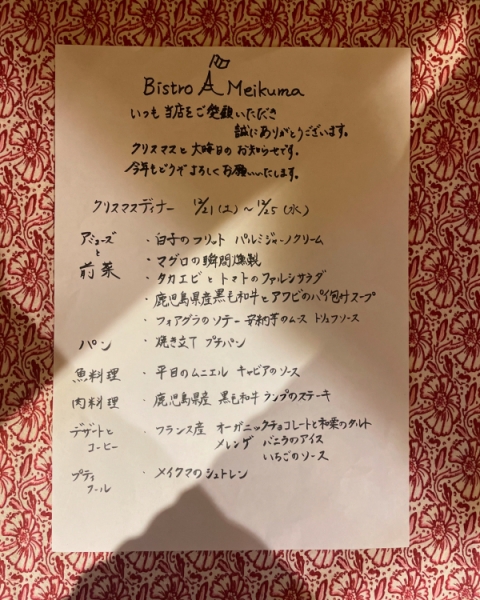 Bistro A Meikuma
いつも当店をご愛顧いただき
誠にありがとうございます。
クリスマスと大晦日のお知らせです。
今年もどうぞよろしくお願いいたします。
クリスマスディナー 12/21(土)～12/25(水)
アミューズと前菜
・白子のフリット パルミジャーノクリーム
・マグロの瞬間燻製
・タカエビとトマトのファルシサラダ
・鹿児島県産黒毛和牛とアワビのパイ包みスープ
・フォアグラのソテー 安納芋のムース トリュフソース
パン ・焼き立て プチパン
魚料理 ・平目のムニエル キャビアのソース
肉料理 ・鹿児島県産 黒毛和牛 ランプのステーキ
デザートと ・フランス産 オーガニックチョコレートと和栗のタルト
コーヒー メレンゲ バニラのアイス
いちごのソース
プティ ・メイクマのシュトレン
フール